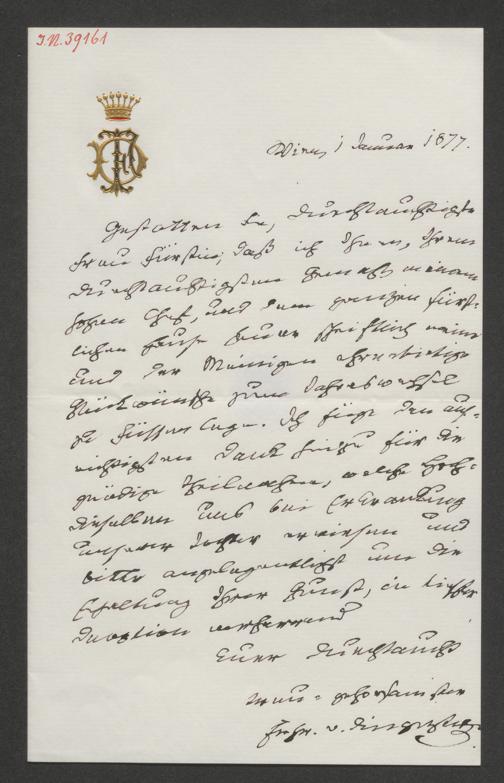 I.N. 39161
Wien, 1 Januar 1877.
Gestatten Sie, Durchlauchtigste
Frau Fürstin, daß ich Ihnen, Ihrem
durchlauchtigsten Gemahl, meinem
hohen Chef, und dem ganzen fürst-
lichen Hause heuer schriftlich meine
und der Meinigen ehrerbietige
Glückwünsche zum Jahreswechsel
zu Füssen lege. Ich füge den auf-
richtigsten Dank hinzu für die
gnädige Theilnahme, welche Hoch-
dieselben uns bei Erkrankung
unserer Tochter erwiesen und
bitte angelegentlichst um die
Erhaltung Ihrer Gunst, in tiefster
Devotion verharrend
Euer Durchlaucht
treu-gehorsamster
Frhr. v. Dingelstedt